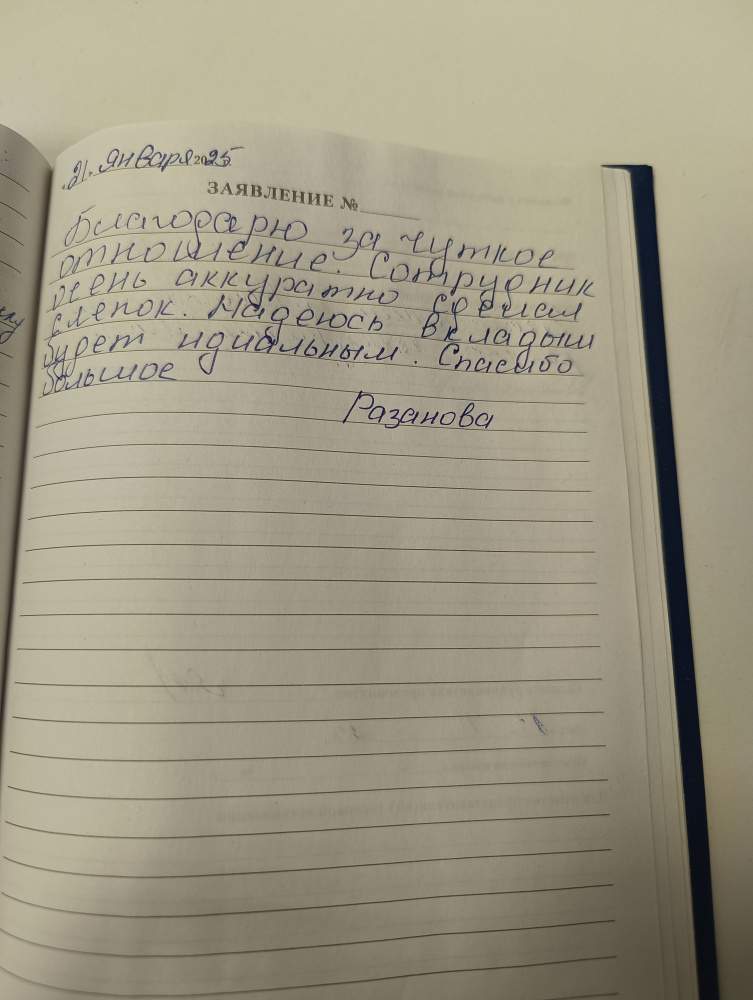 21. Января 2025
ЗАЯВЛЕНИЕ №
Благодарю за чуткое
отношение. Сотрудник
очень аккуратно сделал
слепок. Надеюсь вкладыш
будет идиальным. Спасибо
большое
Разанова